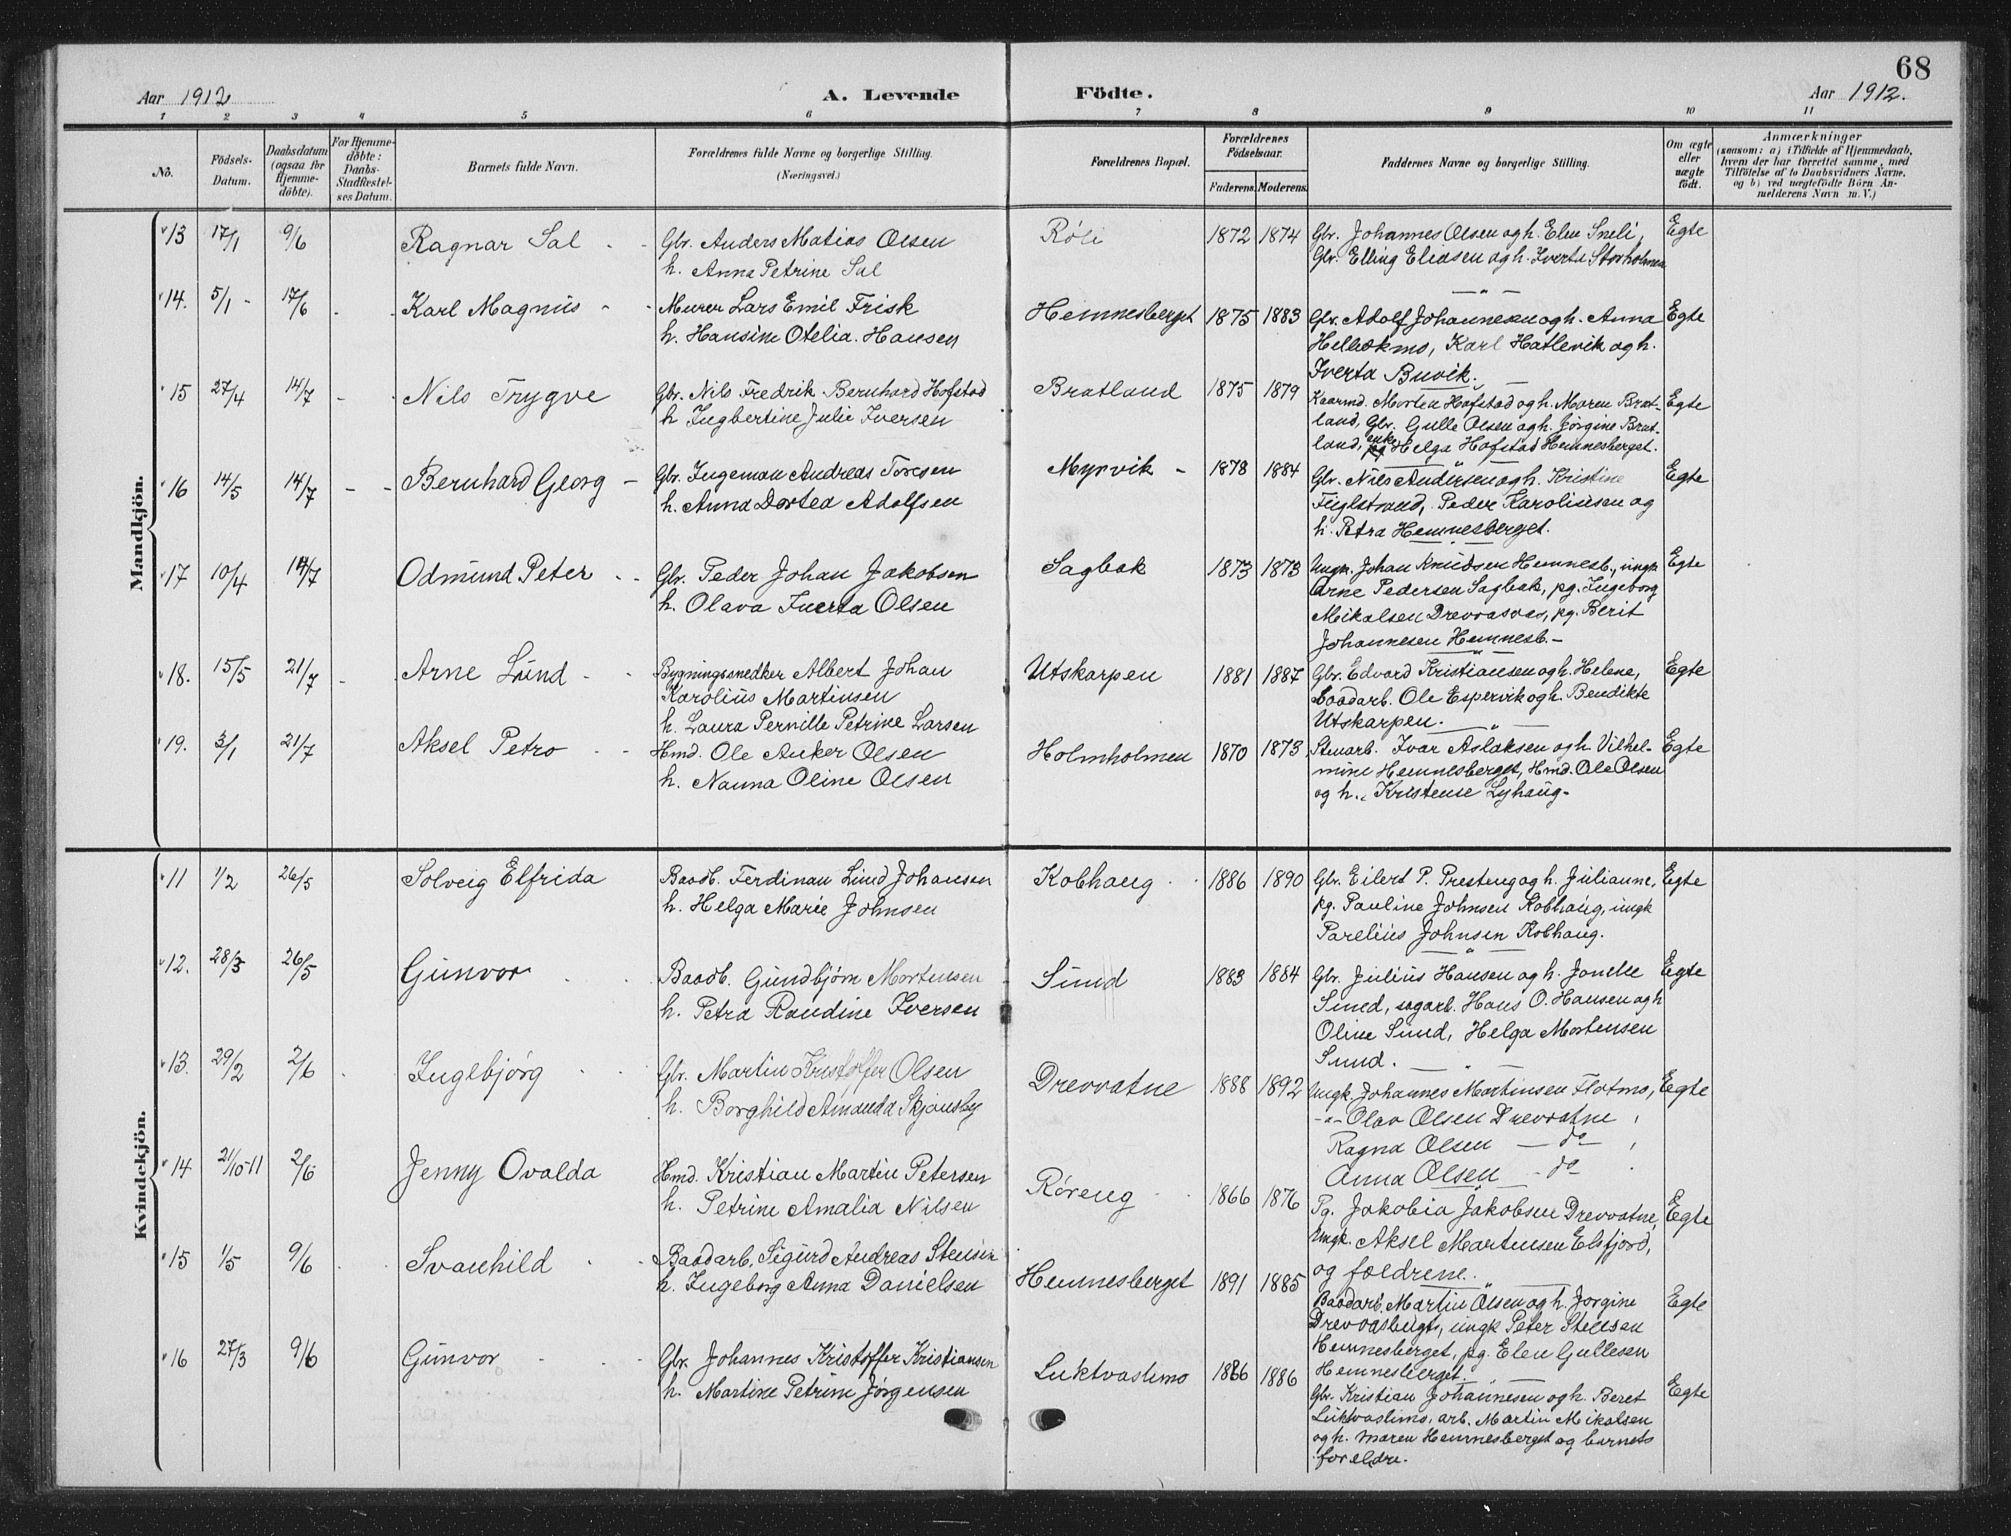 68
Aar 1912
A. Levende
Födte.
Aar 1912.
1 2 3 4 5 6 7 8 9 10 11
No.
Födsels-
Datum.
Daabsdatum
(ogsaa for
Hjemme-
döbte).
For Hjemme-
döbte:
Daabs-
Stadfæstel-
ses Datum.
Barnets fulde Navn.
Forældrenes fulde Navne og borgerlige Stilling.
(Næringsvei.)
Forældrenes Bopæl.
Forældrenes
Födselsaar.
Faderens. Moderens.
Faddernes Navne og borgerlige Stilling.
Om ægte
eller
uægte
födt.
Anmærkninger
(saasom: a) i Tilfælde af Hjemmedaab,
hvem der har forrettet samme, med
Tilföielse af to Daabsvidners Navne,
og b) ved uægtefödte Börn An-
melderens Navn m. V.)
Mandkjön.
13 17/1 9/6 Ragnar Sal Gbr. Anders Matias Olsen Røli 1872 1874 Gbr. Johannes Olsen og h. Elen Sneli, Egte
h. Anna Petrine Sal Gbr. Elling Eliasen og h. Iverta Storholmen
14. 5/1 17/6 Karl Magnus Murer Lars Emil Frisk Hemnesberget 1875 1883 Gbr. Adolf Johannesen og h. Anna Egte
h. Hansine Otelia Hansen Karl Hatlevik og h.
Iverta Buvik.
15 27/4 14/7 Nils Trygve Gbr. Nils Fredrik Bernhard Hofstad Bratland 1875 1879 Kaarmd. Morten Hofstad og h. Maren Brat- Egte
h Ingbertine Julie Iversen land, Gbr. Gulle Olsen og h. Jørgine Brat-
land, enke Helga Hofstad Hemnesberget.
16 14/5 14/7 Bernhard Georg Gbr. Ingeman Andreas Toresen Myrvik 1878 1884 Gbr. Nils Andersen og h. Kristine Egte
h. Anna Dortea Adolfsen Fuglstrand, Peder Karoliusen og
h. Petra Hemnesberget.
17 10/4 14/7 Odmund Peter Gbr. Peder Johan Jakobsen Sagbak 1873 1873 Ungk. Johan Knudsen Hemnesb., ungk. Egte
h. Olava Iverta Olsen Arne Pedersen Sagbak, pg. Ingeborg
Mikalsen Drevvasaas, pg. Berit
Johannesen Hemnesb.
18. 15/5 21/7 Arne Lund Bygningssnedker Albert Johan Utskarpen 1881 1887 Gbr. Edvard Kristiansen og h. Helene, Egte
Karolius Martinsen Baadarb. Ole Espervik og h. Bendikte
h. Laura Pernille Petrine Larsen Utskarpen.
19. 3/1 21/7 Aksel Petro Hmd. Ole Anker Olsen Holmholmen 1870 1873 Stenarb. Ivar Aslaksen og h. Vilhel- Egte
h. Nanna Oline Olsen mine Hemnesberget, Hmd. Ole Olsen
og h. Kristense Lyhaug.
Kvindekjön.
11 1/2 26/5 Solveig Elfrida Baadb. Ferdinan Lund Johansen Kobhaug 1886 1890 Gbr. Eilert P. Presteng og h. Julianne, Egte
h. Helga Marie Johnsen pg. Pauline Johnsen Kobhaug, ungk
Parelius Johnsen Kobhaug.
12. 28/3 26/5 Gunvor Baadb. Gundbjørn Mortensen Sund 1883 1884 Gbr. Julius Hansen og h. Egte
h. Petra Randine Iversen Sund, sagarb. Hans O. Hansen og h
Oline Sund, Helga Mortensen
Sund.
13. 29/2 2/6 Ingebjørg Gbr. Martin Kristoffer Olsen Drevvatne 1888 1892 Ungk. Johannes Martinsen Flotmo, Egte
h. Borghild Amanda Skjønsby -"- Olav Olsen Drevvatne
Ragna Olsen - do
Anna Olsen - do
14 21/10-11 2/6 Jenny Ovalda Hmd. Kristian Martin Petersen Røreng 1866 1876 Pg. Jakobia Jakobsen Drevvatne, Egte
h. Petrine Amalia Nilsen Ungk. Aksel Martinsen Elsfjord,
og foreldrene.
15 1/5 9/6 Svanhild Baadarb. Sigurd Andreas Stensen Hemnesberget 1891 1885 Baadarb. Martin Olsen og h. Jørgine Egte
h. Ingeborg Anna Danielsen ungk Peter Stensen
Hemnesberget, pg. Elen Gullesen
Hemnesberget.
16 27/3 9/6 Gunvor Gbr. Johannes Kristoffer Kristiansen Luktvaslimo 1886 1886 Gbr. Kristian Johannesen og h. Beret Egte
h. Martine Petrine Jørgensen Luktvaslimo, arb. Martin Mikalsen
og h. Maren Hemnesberget og barnets
foreldre.